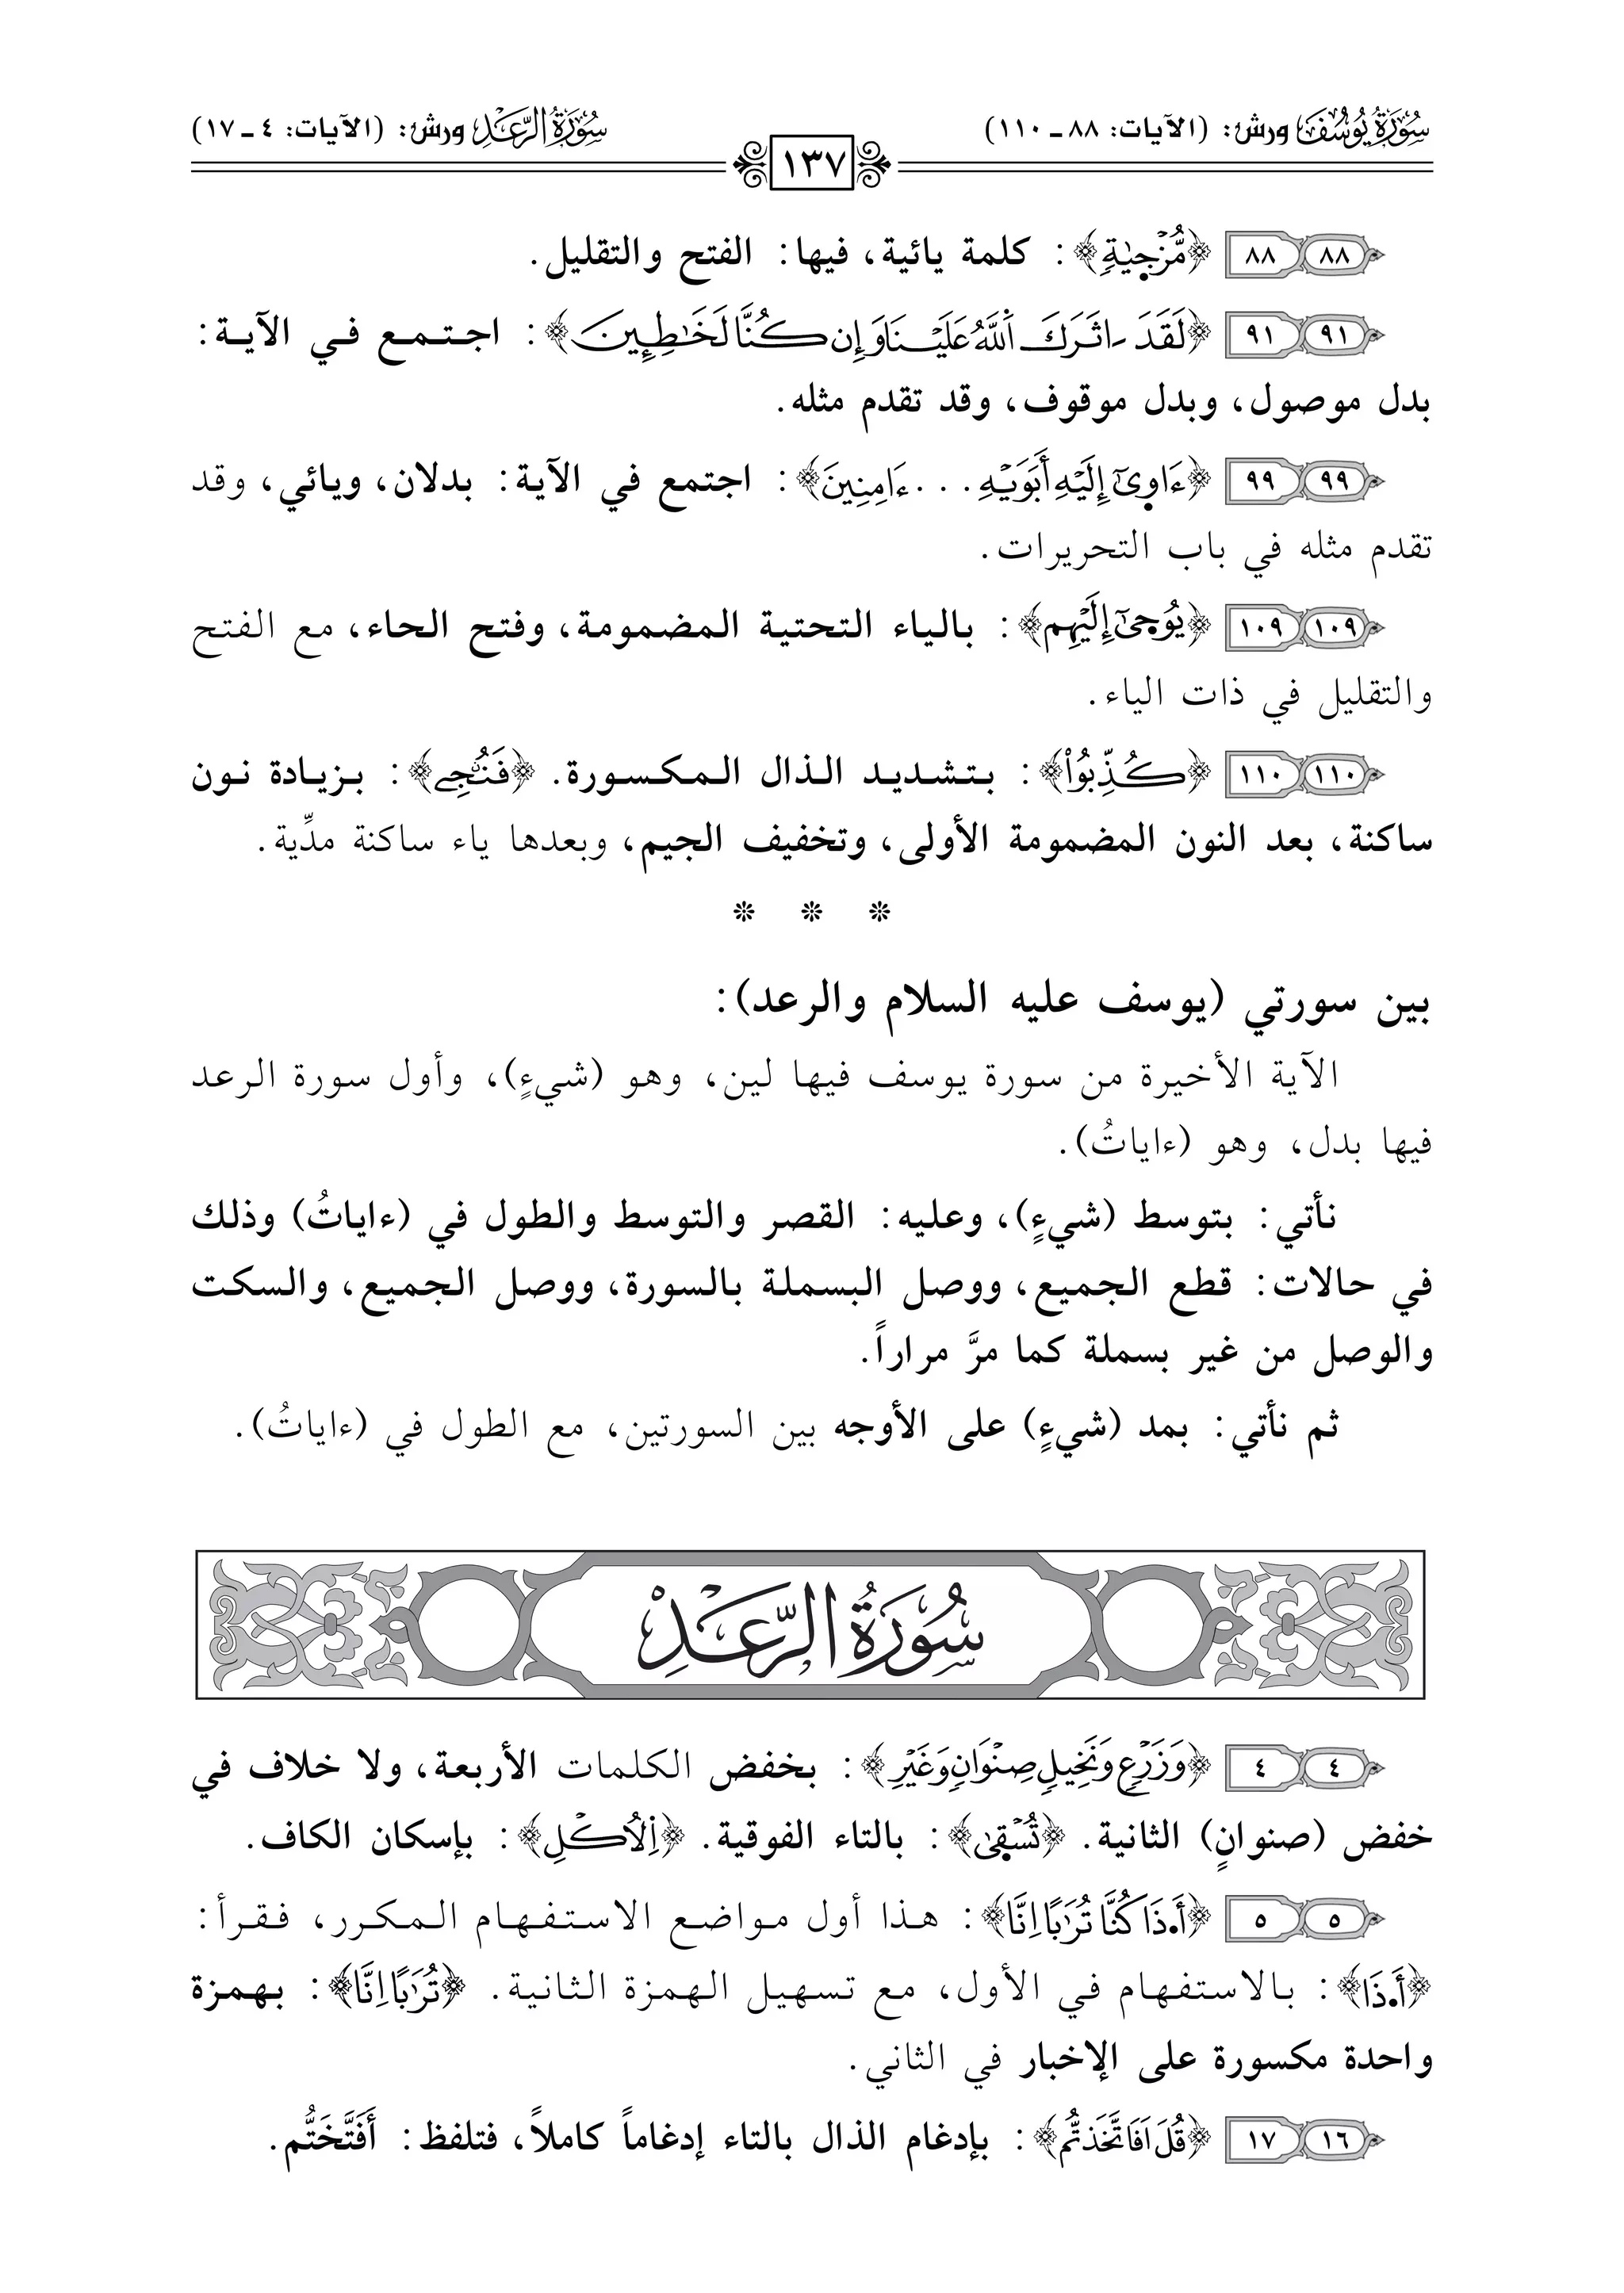 سُورَةُ يُوسُفَ ورش: (الآيات: ٨٨ ـ ١١٠)
١٣٧
سُورَةُ الرَّعْدِ ورش: (الآيات: ٤ ـ ١٧)
٨٨ ٨٨ ﴿مُّزْجَىٰةٍ﴾: كلمة يائية، فيها: الفتح والتقليل.
٩١ ٩١ ﴿لَقَدَ ـاثَرَكَ اَ۬للَّهُ عَلَيْنَا وَإِن كُنَّا لَخَٰطِـِٕينَ﴾: اجتمع في الآية:
بدل موصول، وبدل موقوف، وقد تقدم مثله.
٩٩ ٩٩ ﴿ءَاو۪ىٰٓ إِلَيْهِ أَبَوَيْهِ... ءَامِنِينَ﴾: اجتمع في الآية: بدلان، ويائي، وقد
تقدم مثله في باب التحريرات.
١٠٩ ١٠٩ ﴿يُوح۪ىٰٓ إِلَيْهِم﴾: بالياء التحتية المضمومة، وفتح الحاء، مع الفتح
والتقليل في ذات الياء.
١١٠ ١١٠ ﴿كُذِّبُواْ﴾: بتشديد الذال المكسورة. ﴿فَنُۨجِے﴾: بزيادة نون
ساكنة، بعد النون المضمومة الأولى، وتخفيف الجيم، وبعدها ياء ساكنة مدِّية.
❊ ❊ ❊
بين سورتي (يوسف عليه السلام والرعد):
الآية الأخيرة من سورة يوسف فيها لين، وهو (شيءٍ)، وأول سورة الرعد
فيها بدل، وهو (ءاياتُ).
نأتي: بتوسط (شيءٍ)، وعليه: القصر والتوسط والطول في (ءاياتُ) وذلك
في حالات: قطع الجميع، ووصل البسملة بالسورة، ووصل الجميع، والسكت
والوصل من غير بسملة كما مرَّ مراراً.
ثم نأتي: بمد (شيءٍ) على الأوجه بين السورتين، مع الطول في (ءاياتُ).
سُورَةُ الرَّعْدِ
٤ ٤ ﴿وَزَرْعٍ وَنَخِيلٍ صِنْوَانٍ وَغَيْرِ﴾: بخفض الكلمات الأربعة، ولا خلاف في
خفض (صنوانٍ) الثانية. ﴿تُسْق۪ىٰ﴾: بالتاء الفوقية. ﴿اِ۬لُاكْلِ﴾: بإسكان الكاف.
٥ ٥ ﴿أَ۟ذَا كُنَّا تُرَٰباً اِنَّا﴾: هذا أول مواضع الاستفهام المكرر، فقرأ:
﴿أَ۟ذَا﴾: بالاستفهام في الأول، مع تسهيل الهمزة الثانية. ﴿تُرَٰباً اِنَّا﴾: بهمزة
واحدة مكسورة على الإخبار في الثاني.
١٦ ١٧ ﴿قُلَ اَفَاتَّخَذتُّم﴾: بإدغام الذال بالتاء إدغاماً كاملاً، فتلفظ: أَفَتَّخَتُّم.